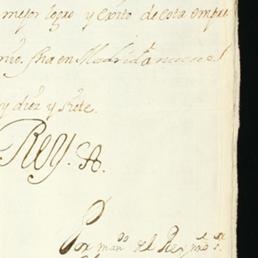 mejor logro y exito de esta empre
nio. fha en Madrid a
y diez y siete.
Yo el Rey.
Por man.do del Rey nro s.r